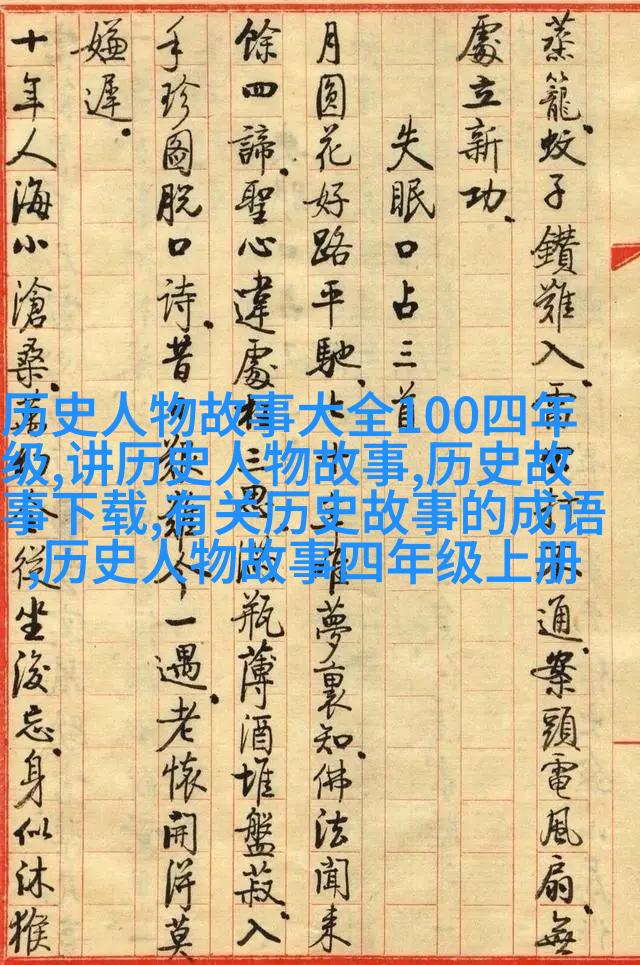 蒸籠。蚊子鑽難入。通。案頭電風扇。無
處立新功。
失眠口占三首
月圓花好路平馳。夢裏知。佛法聞來
餘四諦。聖心違處三思瓶薄酒堆盤菽。入
手珍圖脫口詩。昔難一遇。老懷開得莫
嫌遲。
十年人海小滄桑。從坐後忘。身似沐猴
历史人物故事大全100四年
级,讲历史人物故事,历史故
事下载,有关历史故事的成语
,历史人物故事四年级上册